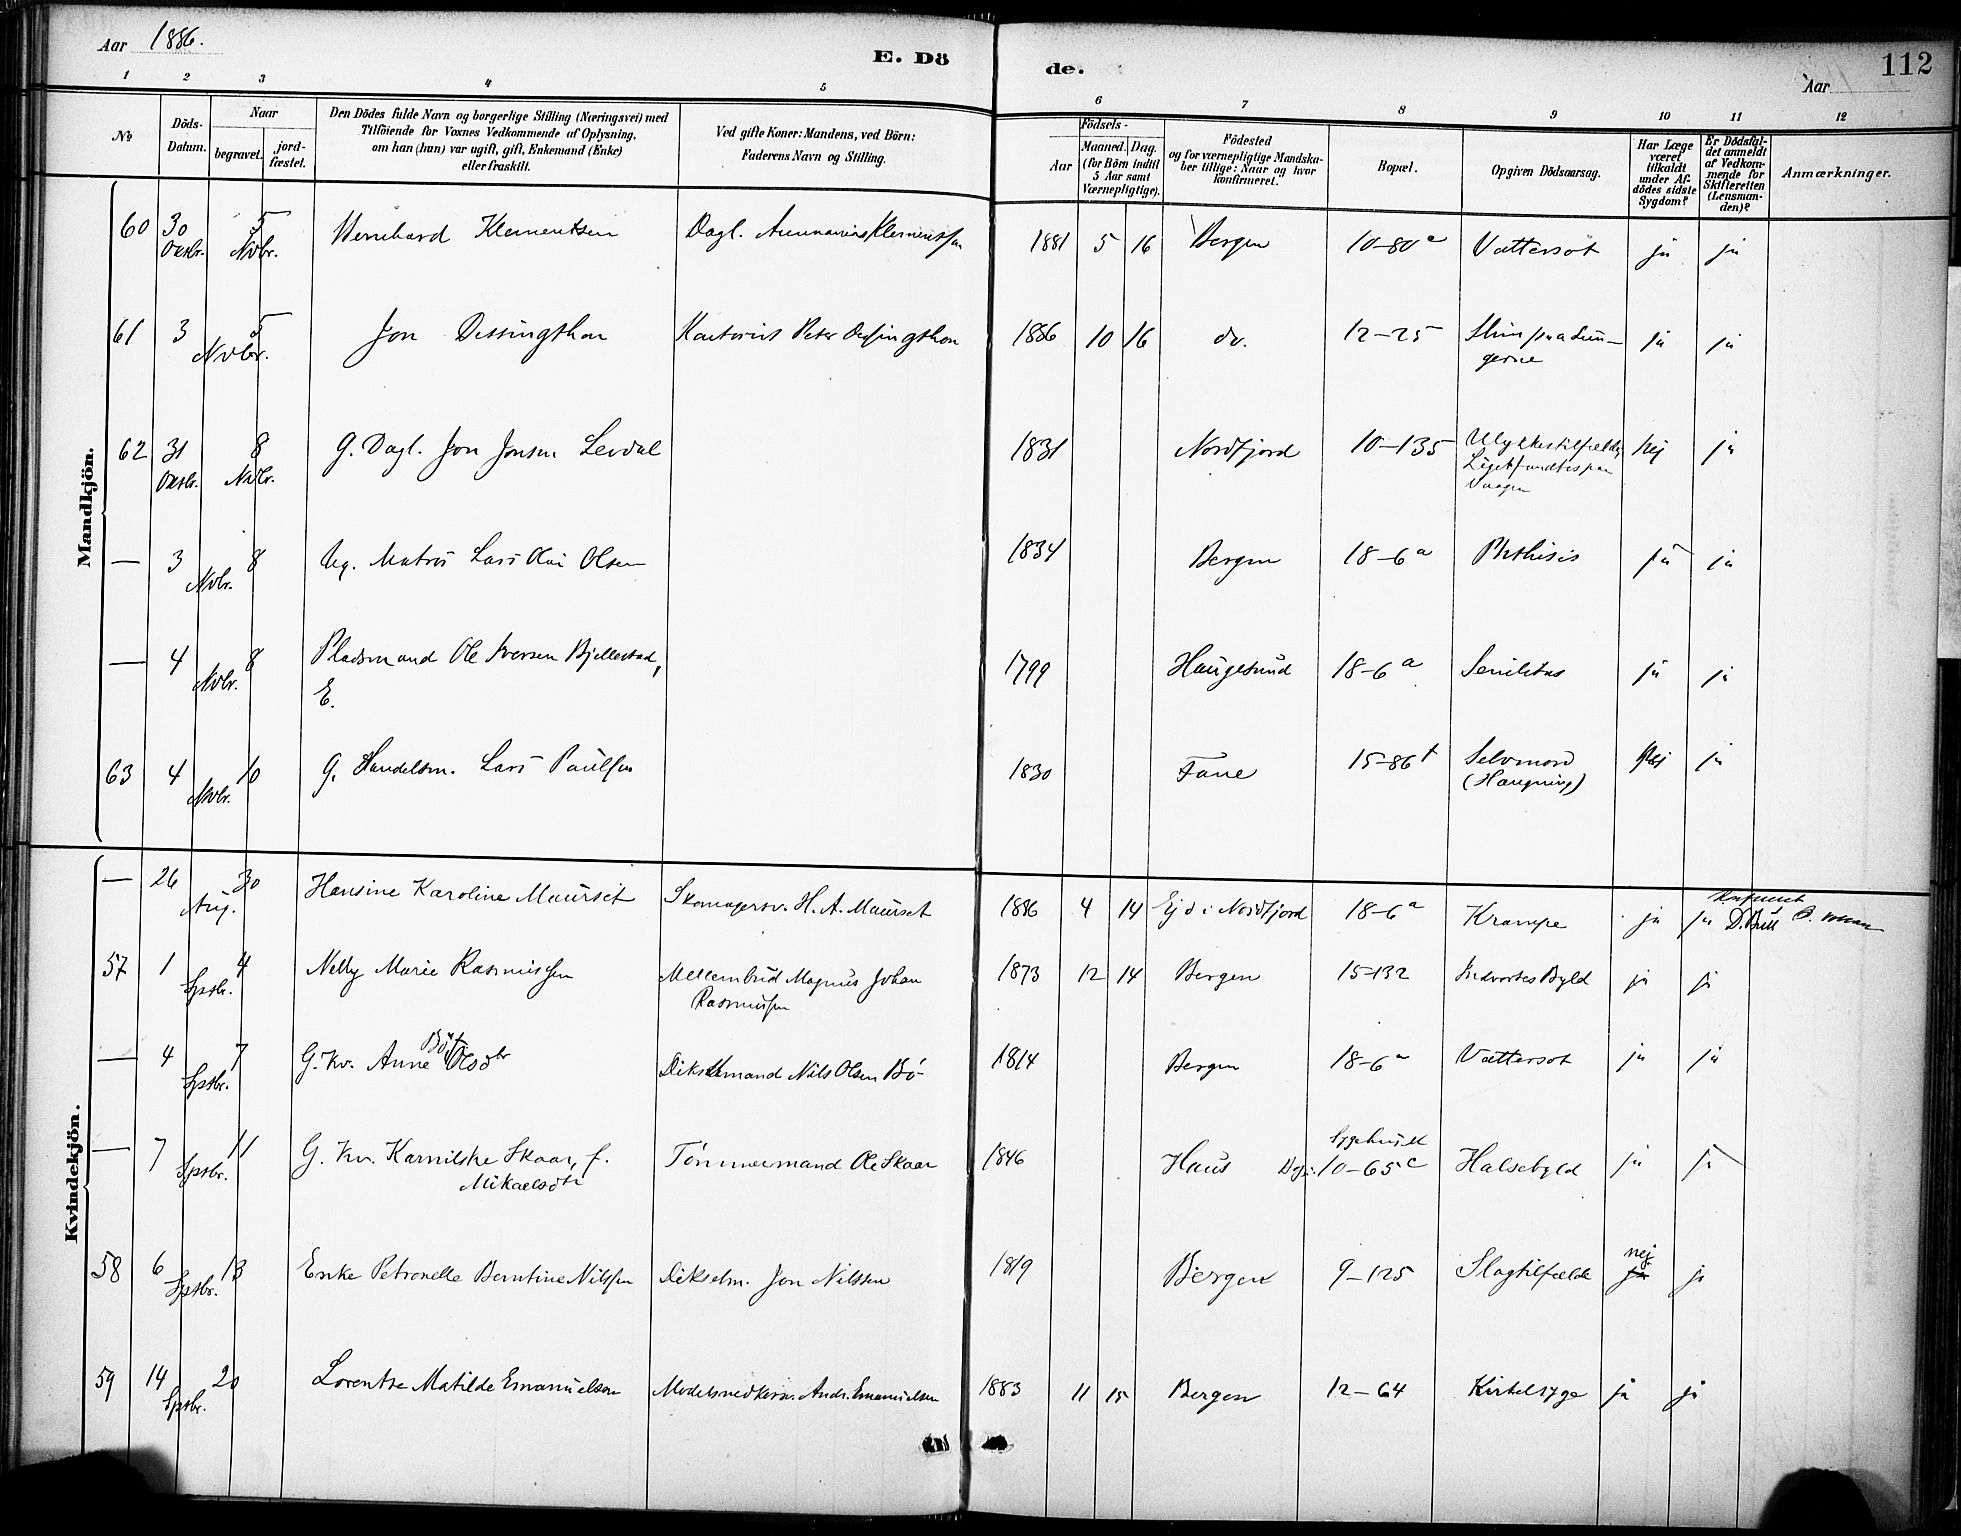 Aar 1886.
E. Dö
de.
Aar
112
1 2 3 4 5 6 7 8 9 10 11 12
No
Döds-Datum.
Naar
begravet.
jord-fæstet.
Den Dödes fulde Navn og borgerlige Stilling (Næringsvei) med
Tilföiende for Voxnes Vedkommende af Oplysning,
om han (hun) var ugift, gift, Enkemand (Enke)
eller fraskilt.
Ved gifte Koner: Mandens, ved Börn:
Faderens Navn og Stilling.
Födsels-
Aar
Maaned. Dag.
(for Börn indtil
5 Aar samt
Værnepligtige).
Födested
og for værnepligtige Mandska-
ber tillige: Naar og hvor
konfirmeret.
Bopæl.
Opgiven Dödsaarsag.
Har Læge
været
tilkaldt
under Af-
dödes sidste
Sygdom?
Er Dödsfal-
det anmeldt
af Vedkom-
mende for
Skifteretten
(Lensman-
den)?
Anmærkninger.
Mandkjön.
60 30 Oktbr. 5 Nvbr. Bernhard Klementsen Dagl. Klementsen 1881 5 16 Bergen 10-80a Vattersot ja ja
61 3 5 Nvbr. Jon Dessingthon Kontorist Peter Dessingthon 1886 10 16 do. 12-25 Sliim paa Lun-
gerne ja ja
62 31 Oktbr. 8 Nvbr. G. Dagl. Jon Jonsen Levdal 1831 Nordfjord 10-135 Ulykkestilfælde,
Liget fundtes paa
Vaagen Nej ja
— 3 Nvbr. 8 Ug. Matros Lars Olai Olsen 1834 Bergen 18-6a Phthisis ja ja
— 4 Nvbr. 8 Pladsmand Ole Iversen Bjellestad,
E. 1799 Haugesund 18-6a Senilitas ja ja
63 4 Nvbr. 10 G. Handelsm. Lars Paulsen 1830 Fane 15-86 Selvmord
(Hængning) Nej ja
Kvindekjön.
— 26 Aug. 30 Hansine Karoline Maurset Skomagersv. H. A. Maurset 1886 4 14 Ejd i Nordfjord 18-6a Krampe ja ja
57 1 Sptbr. 4 Nelly Marie Rasmussen Mellembud Magnus Johan
Rasmussen 1873 12 14 Bergen 15-132 Indvortes Byld ja ja
— 4 Sptbr. 7 G. Kv. Anne Bö f. Olsdtr Dikselmand Nils Olsen Bö 1814 Bergen 18-6a Vattersot ja ja
— 7 Sptbr. 11 G. Kv. Karnilske Skaar, f.
Mikaelsdtr Tömmermand Ole Skaar 1846 Haus Sygehuset
10-65c Halsebyld ja ja
58 6 Sptbr. 13 Enke Petronelle Berntine Nilssen Dikselm. Jon Nilssen 1819 Bergen 9-125 Slagtilfælde nej ja ja
59 14 Sptbr. 20 Lorentze Matilde Emanuelsen Andr. Emanuelsen 1883 11 15 Bergen 12-64 Kirtelsyge ja ja